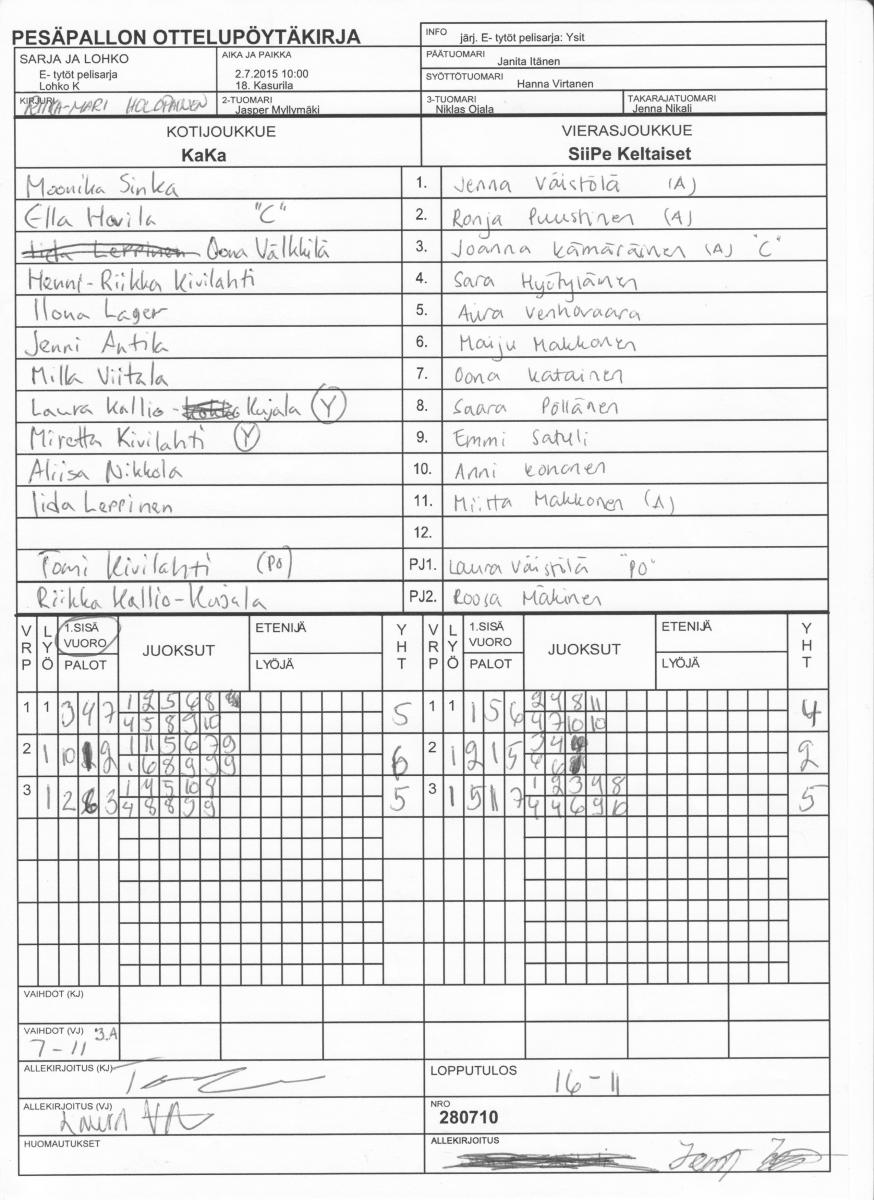 PESÄPALLON OTTELUPÖYTÄKIRJA
INFO järj. E- tytöt pelisarja: Ysit
SARJA JA LOHKO
E- tytöt pelisarja
Lohko K
AIKA JA PAIKKA
2.7.2015 10:00
18. Kasurila
PÄÄTUOMARI
Janita Itänen
SYÖTTÖTUOMARI
Hanna Virtanen
KIRJURI
RIIKKA-MARI HOLOPAINEN
2-TUOMARI
Jasper Myllymäki
3-TUOMARI
Niklas Ojala
TAKARAJATUOMARI
Jenna Nikali
KOTIJOUKKUE
KaKa
VIERASJOUKKUE
SiiPe Keltaiset
Moonika Sinka 1. Jenna Väistölä (A)
Ella Havila "C" 2. Ronja Puustinen (A)
Iida Leppinen Oona Välkkilä 3. Joanna Kämäräinen (A) "C"
Henni-Riikka Kivilahti 4. Sara Hyötyläinen
Ilona Lager 5. Aura Venhovaara
Jenni Antila 6. Maiju Makkonen
Milla Viitala 7. Oona Katainen
Laura Kallio- Kujala Y 8. Saara Pöllänen
Miretta Kivilahti Y 9. Emmi Satuli
Aliisa Nikkola 10. Anni Kononen
Iida Leppinen 11. Miitta Makkonen (A)
12.
Tomi Kivilahti (PO) PJ1. Laura Väistölä "PO"
Riikka Kallio-Kujala PJ2. Roosa Mäkinen
VRP LYÖ 1.SISÄ VUORO PALOT JUOKSUT ETENIJÄ LYÖJÄ YHT VRP LYÖ 1.SISÄ VUORO PALOT JUOKSUT ETENIJÄ LYÖJÄ YHT
1 1 3 4 7 1 2 5 6 8 5 1 1 1 5 6 2 4 8 11 4
4 5 8 9 10 4 7 10 10
2 1 10 1 2 1 11 5 6 7 9 6 2 1 2 1 5 3 4 2
1 6 8 9 9 9 6 6
3 1 2 6 3 1 4 5 10 8 5 3 1 5 11 7 1 2 3 4 8 5
4 8 8 9 9 4 4 6 9 10
VAIHDOT (KJ)
VAIHDOT (VJ) 3.A
7-11
ALLEKIRJOITUS (KJ)
LOPPUTULOS 16-11
ALLEKIRJOITUS (VJ)
Laura
NRO
280710
HUOMAUTUKSET
ALLEKIRJOITUS